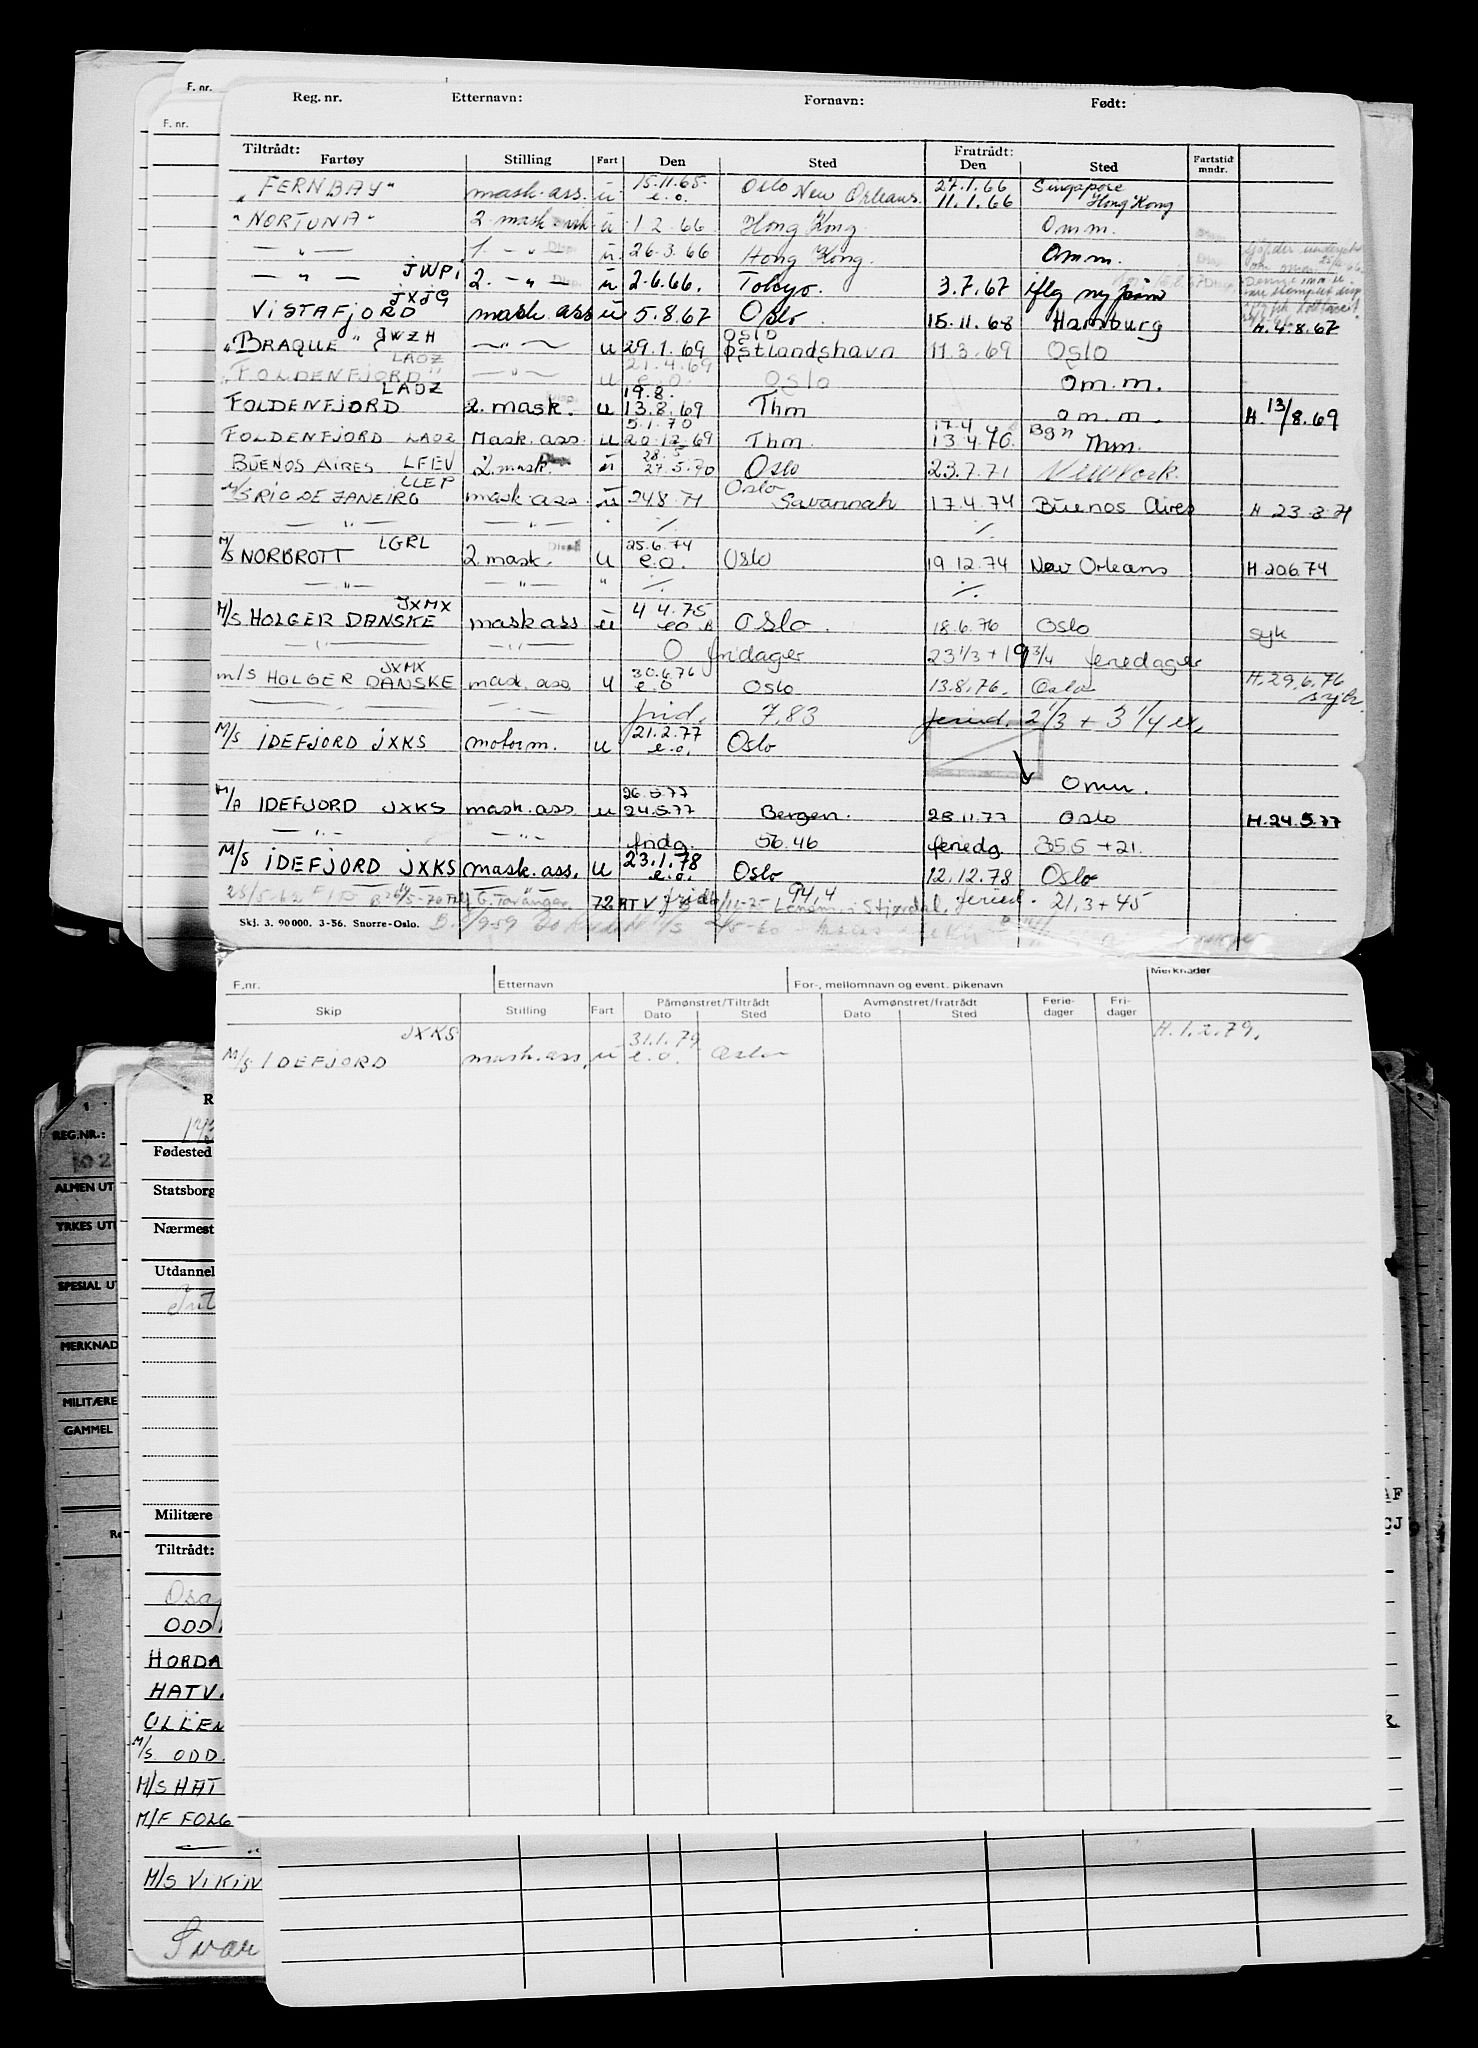 F. nr.
F. nr.
Reg. nr. Etternavn: Fornavn: Født:
Tiltrådt: Fratrådt: Fartstid
Fartøy Stilling Fart Den Sted Den Sted mndr.
15.11.65. 27.1.66 Singapore
"FERNBAY" mask.ass. u e.o. Oslo New Orleans. 11.1.66 Hong Kong
"NORTUNA" 2. mask u 1.2.66 Hong Kong Omm.
— " — 1. — " u 26.3.66 Hong Kong. Omm.
— " — JWPi 2. — " — u 2.6.66. Tokyo. 3.7.67 iflg ny
JXJG
VISTAFJORD mask.ass u 5.8.67 Oslo 15.11.68 Hamburg H.4.8.67
Oslo
"BRAQUE" JWZH — " — u 29.1.69 Østlandshavn 11.3.69 Oslo
LAOZ 21.4.69
"FOLDENFJORD" — " — u e.o. Oslo om.m.
LAOZ 19.8.
FOLDENFJORD 2. mask. u 13.8.69 Thm om.m. H. 13/8.69
5.1.70 17.4 Bgn
FOLDENFJORD LAOZ Mask.ass. u 20.12.69 Thm. 13.4.70. Thm.
28.5
BUENOS AIRES LFEV 2. mask. u 27.5.70 Oslo 23.7.71 New York.
LLEP Oslo
M/S RIO DE JANEIRO mask.ass. u 24.8.71 Savannah 17.4.74 Buenos Aires H 23.8.71
— " — — " — ./. ./.
LGRL 25.6.74
M/S NORBROTT 2. mask. u e.o. Oslo 19.12.74 New Orleans H.20.6.74
— " — — " — " ./. ./.
JXMX 4.4.75
M/S HOLGER DANSKE mask ass u e.o. Oslo. 18.6.76 Oslo syk
— " — — " — 0 fridager 23 1/3 + 19 3/4 feriedager
JXMX 30.6.76
m/s HOLGER DANSKE mask.ass u e.o Oslo 13.8.76. Oslo H.29.6.76
frid. 7,83 feried. 2 1/3 + 3 1/4
21.2.77
M/S IDEFJORD JXKS motorm. u e.o. Oslo
Omm.
26.5.77
M/A IDEFJORD JXKS mask.ass. u 24.5.77 Bergen. 28.11.77 Oslo H.24.5.77
— " — — " — fridg 56.46 feriedg 35.5 + 21.
23.1.78
M/S IDEFJORD JXKS mask.ass. u e.o. Oslo 12.12.78 Oslo
94,4 feried. 21,3 + 45
Skj. 3. 90000. 3-56. Snorre-Oslo.
F.nr. Etternavn For-, mellomnavn og event. pikenavn Merknader
Skip Stilling Fart Påmønstret/Tiltrådt Avmønstret/fratrådt Ferie- Fri-
Dato Sted Dato Sted dager dager
JXKS 31.1.79 H.1.2.79.
M/S IDEFJORD mask.ass. u e.o. Oslo
REG.NR.:
Fødested
ALMEN UT
Statsborg
YRKES UT
Nærmest
Utdannel
SPECIAL U
MERKNAD
MILITÆRE
GAMMEL
Militære
Tiltrådt:
ODD
HORDA
HATV.
ULLEN
M/S ODD.
M/S HAT
M/F FOLG
M/S VIKIN